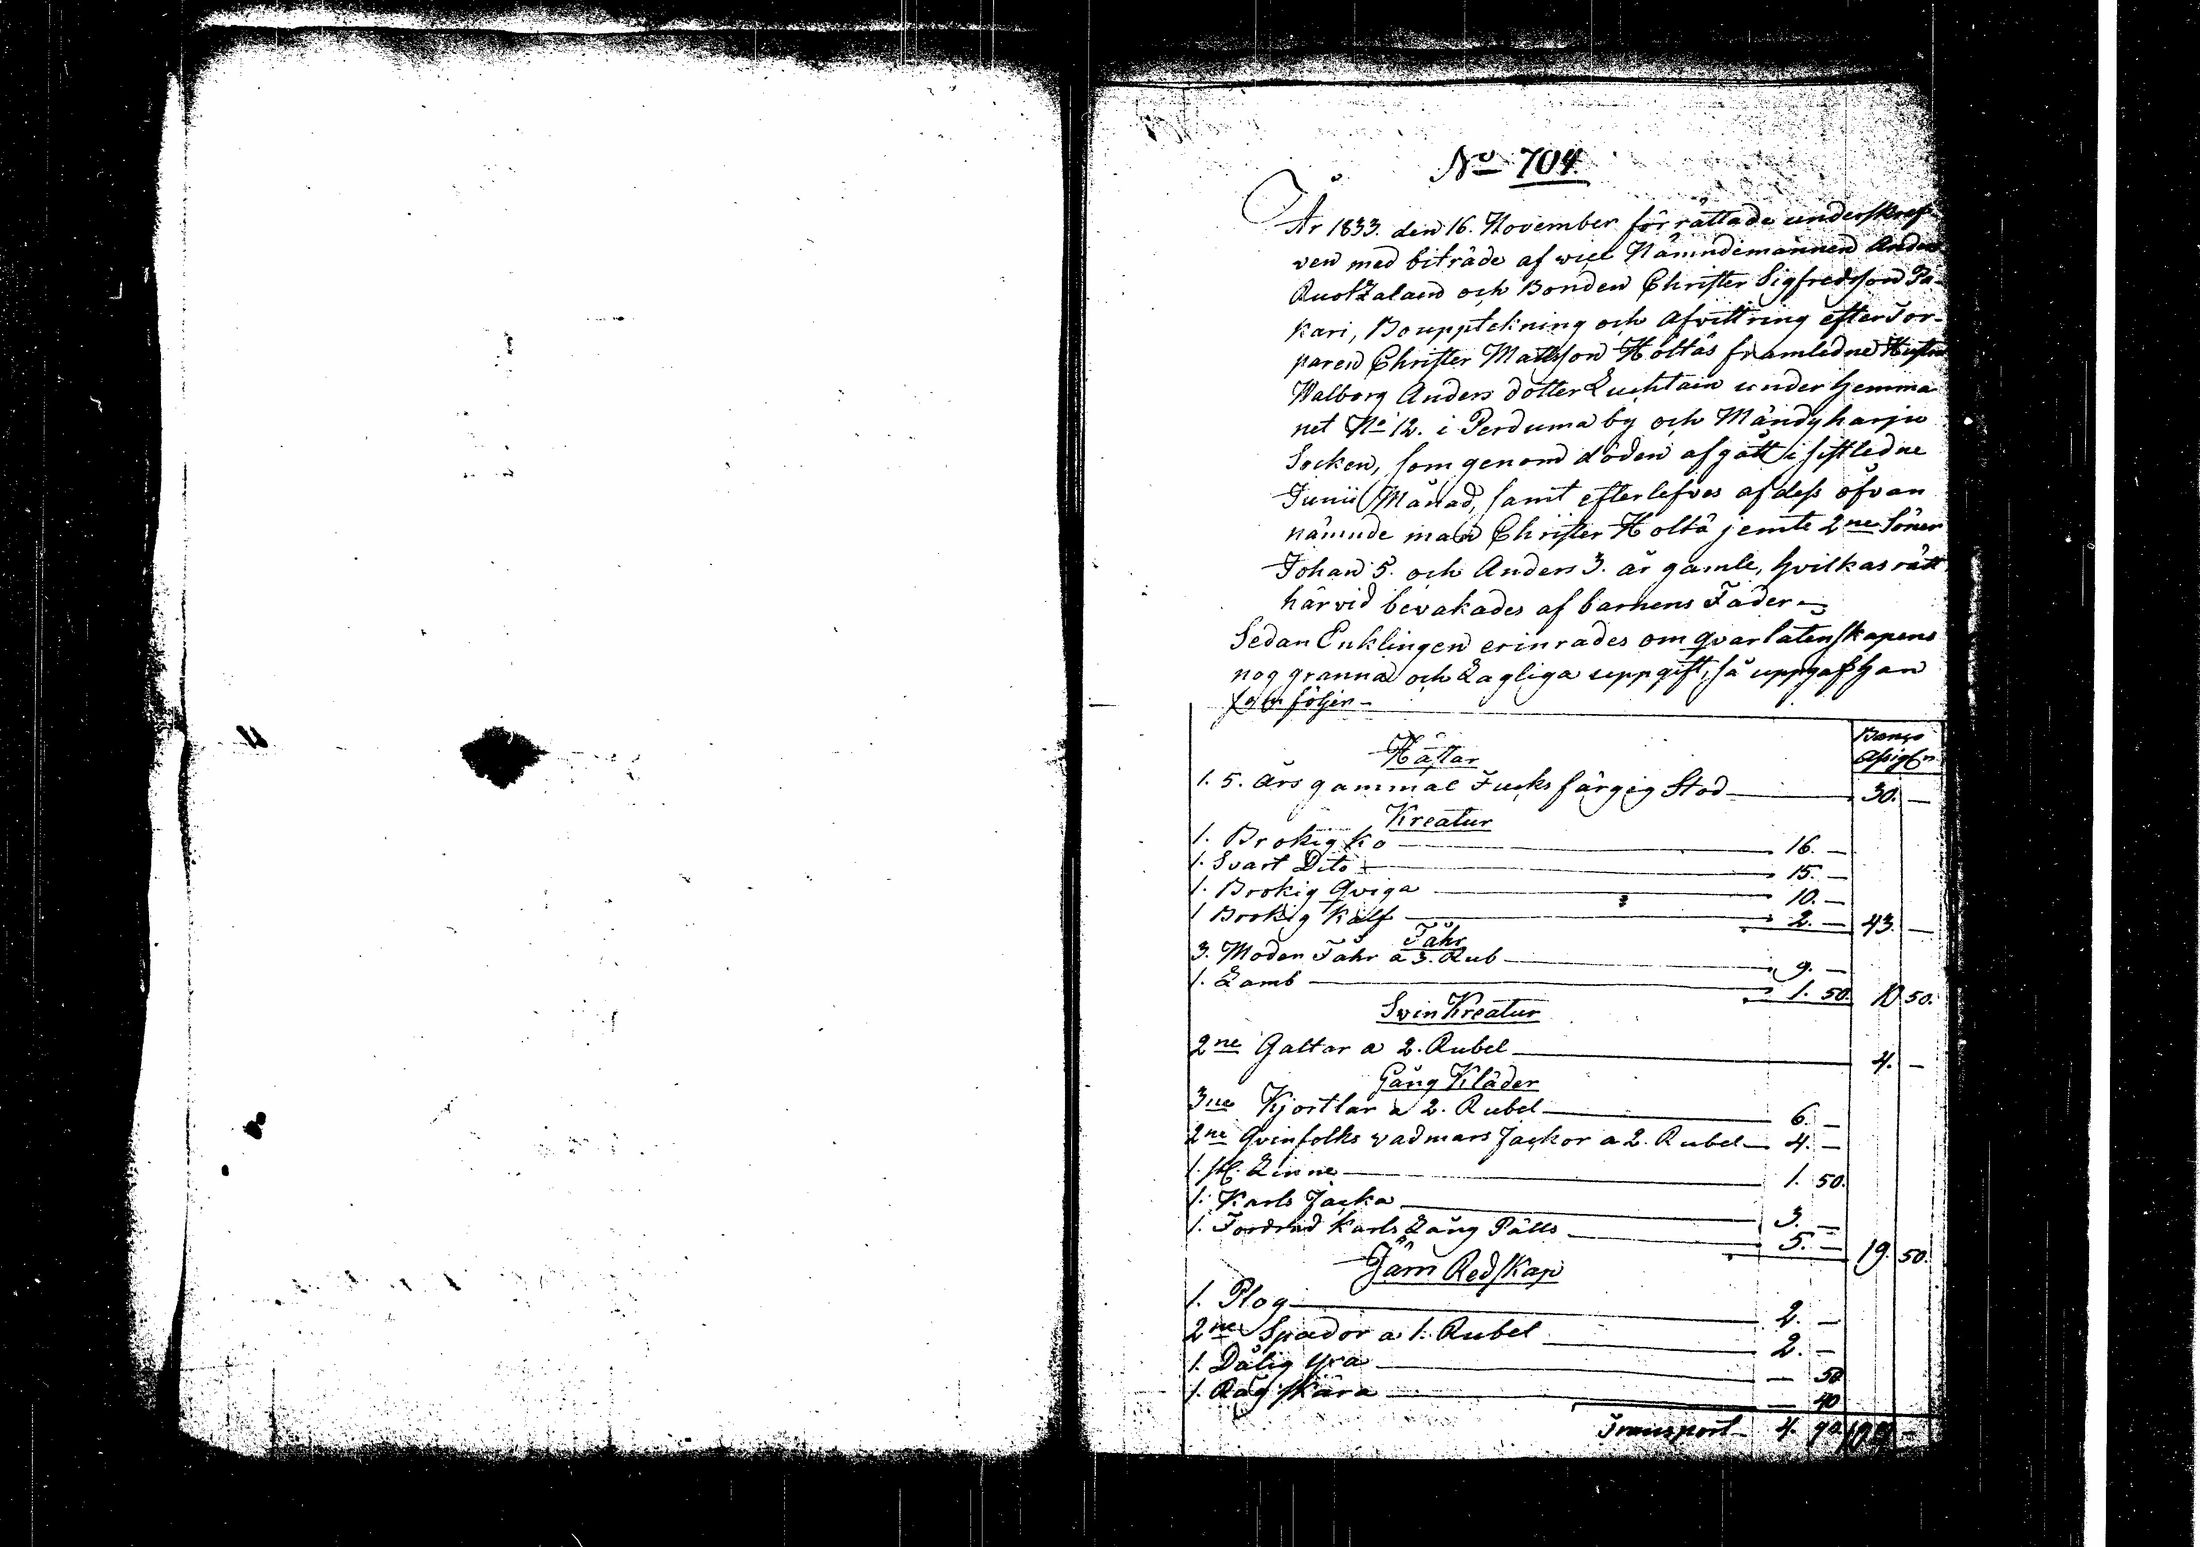 No 704.
År 1833. den 16. November förrättade underskref-
ven med biträde af wice Nämndemannen Anders
Ruotzalain och Bonden Christer Sigfredsson Pa-
kari, Bouppteckning och Afvittring efter Tor-
paren Christer Mattsson Höltäs framledne Hustru
Walborg Anders dotter Luchtain under hemma
net No 12. i Perduma by och Mändyharju
Socken, som genom döden afgått i sistledne
Junii Månad, samt efterlefves af dess ofvan
nämnde man Christer Höltä jemte 2ne Söner
Johan 5. och Anders 3. år gamle, hvilkas rätt
härvid bevakades af barnens Fader.
Sedan Enklingen erinrades om qvarlatenskapens
noggranna och Lagliga uppgift, så uppgaf han
som följer
Banco
Assign
Hästar
1. 5. års gammal Fucksfärgig Stod 30. —
Kreatur
1. Brokig Ko 16. —
1. Svart Dito 15. —
1. Brokig Qviga 10. —
1 Brokig Kalf 2. — 43. —
Fåhr
3. Moder Fåhr a 3. Rub 9. —
1. Lamb 1. 50. 10 50.
Svin Kreatur
2ne Galtar a 2. Rubel 4. —
Gång Kläder
3ne Kjortlar a 2. Rubel 6. —
2ne Qvinfolks vadmars Jackor a 2. Rubel 4. —
1. st. Linne 1. 50.
1. Karls Jacka 3. —
1. Fordrad Karls Lång Pälts 5. — 19. 50.
Järn Redskap
1. Plog 2. —
2ne Spador a 1. Rubel 2. —
1. Dålig yxa — 50
1. Råg skära — 40
Transport 4. 90 107 —